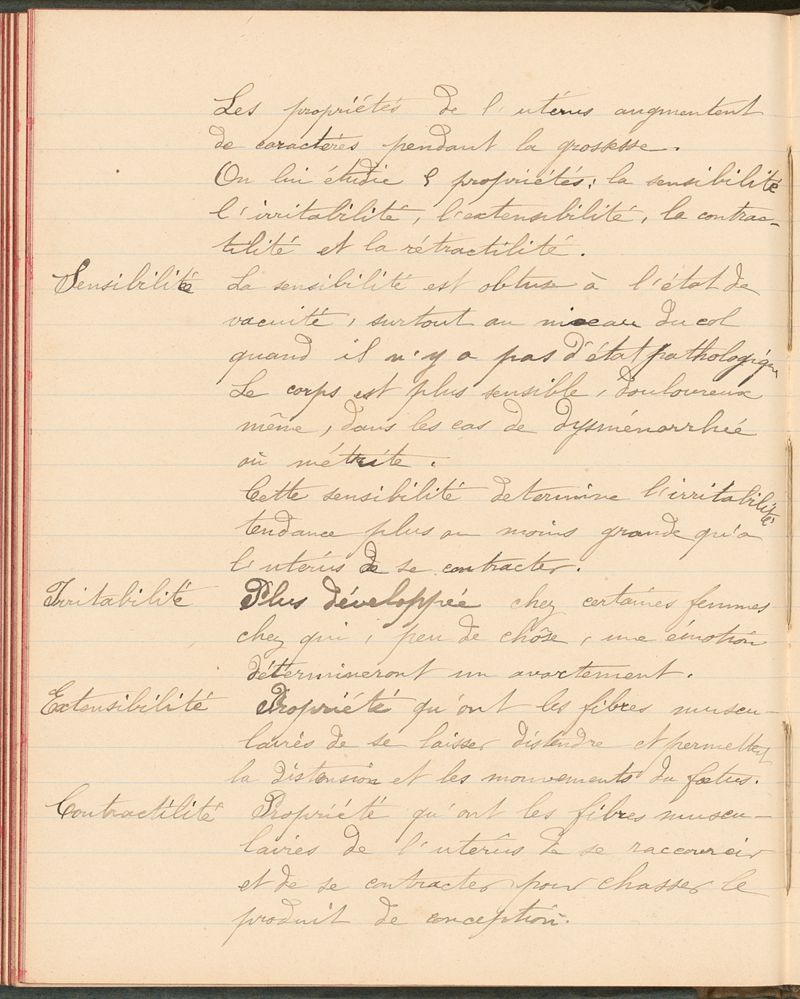 Les propriétés de l'utérus augmentent
de caractères pendant la grossesse.
On lui étudie 5 propriétés: la sensibilité
l'irritabilité, l'extensibilité, la contrac-
tilité et la rétractilité.
Sensibilité La sensibilité est obtuse à l'état de
vacuité, surtout au niveau du col
quand il n'y a pas d'état pathologique
Le corps est plus sensible, douloureux
même, dans les cas de dysménorrhée
où métrite.
Cette sensibilité determine l'irritabilité
tendance plus ou moins grande qu'a
l'utérus de se contracter.
Irritabilité Plus développée chez certaines femmes
chez qui, peu de chôse, une émotion
détermineront un avortement.
Extensibilité Propriété qu'ont les fibres muscu-
laires de se laisser distendre et permettent
la distension et les mouvements du fœtus.
Contractilité Propriété qu'ont les fibres muscu-
laires de l'utérus de se raccourcir
et de se contracter pour chasser le
produit de conception.